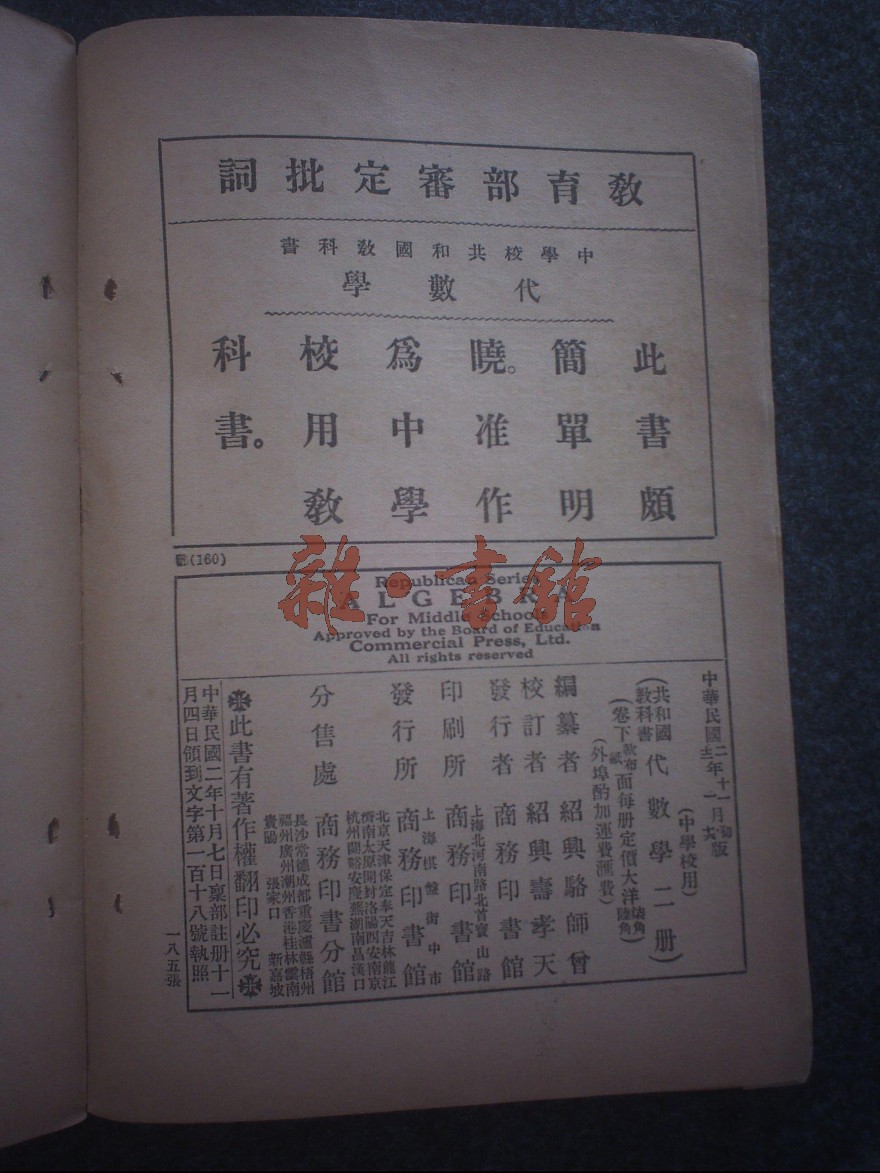 教育部審定批詞
中學校共和國教科書
代數學
此書頗
簡單明
曉。准作
爲中學
校用教
科書。
(160)
雜·書館
Republican Series
ALGEBRA
For Middle Schools
Approved by the Board of Education
Commercial Press, Ltd.
All rights reserved
中華民國二年十一月初版
(中學校用)
(共和國教科書 代數學二册)
(卷下 軟布紙面每册定價大洋柒角陸角)
(外埠酌加運費匯費)
編纂者 紹興駱師曾
校訂者 紹興壽孝天
發行者 商務印書館
上海北河南路北首寶山路
印刷所 商務印書館
上海棋盤街中市
發行所 商務印書館
北京天津保定奉天吉林龍江
濟南太原開封洛陽西安南京
杭州蘭谿安慶蕪湖南昌漢口
分售處 商務印書分館
長沙常德成都重慶瀘縣梧州
福州廣州潮州香港桂林雲南
貴陽 張家口 新嘉坡
此書有著作權翻印必究
中華民國二年十月七日稟部註册十一
月四日領到文字第一百十八號執照
一八五張